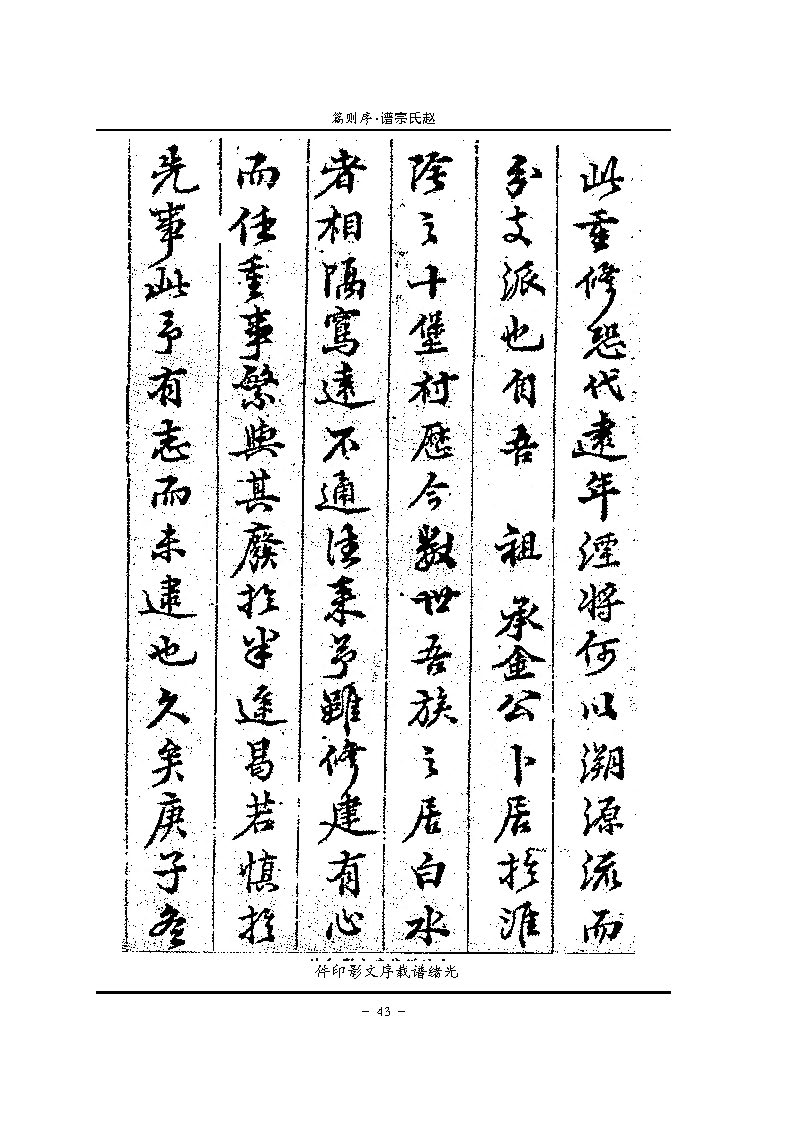 赵氏宗谱·序则篇
此重修恐代遠年湮將何以溯源流而
分支派也自吾 祖承金公卜居於淮
陰之十堡村歷今數世吾族之居白水
者相隔窵遠不通往來予雖修建有心
而任重事繁與其廢於半途曷若慎於
先事此予有志而未逮也久矣庚子冬
光绪谱载序文影印件
- 43 -